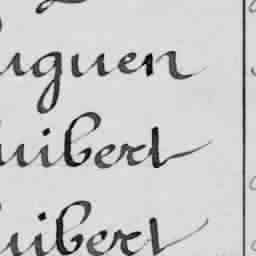 uguen
uibert
uibert